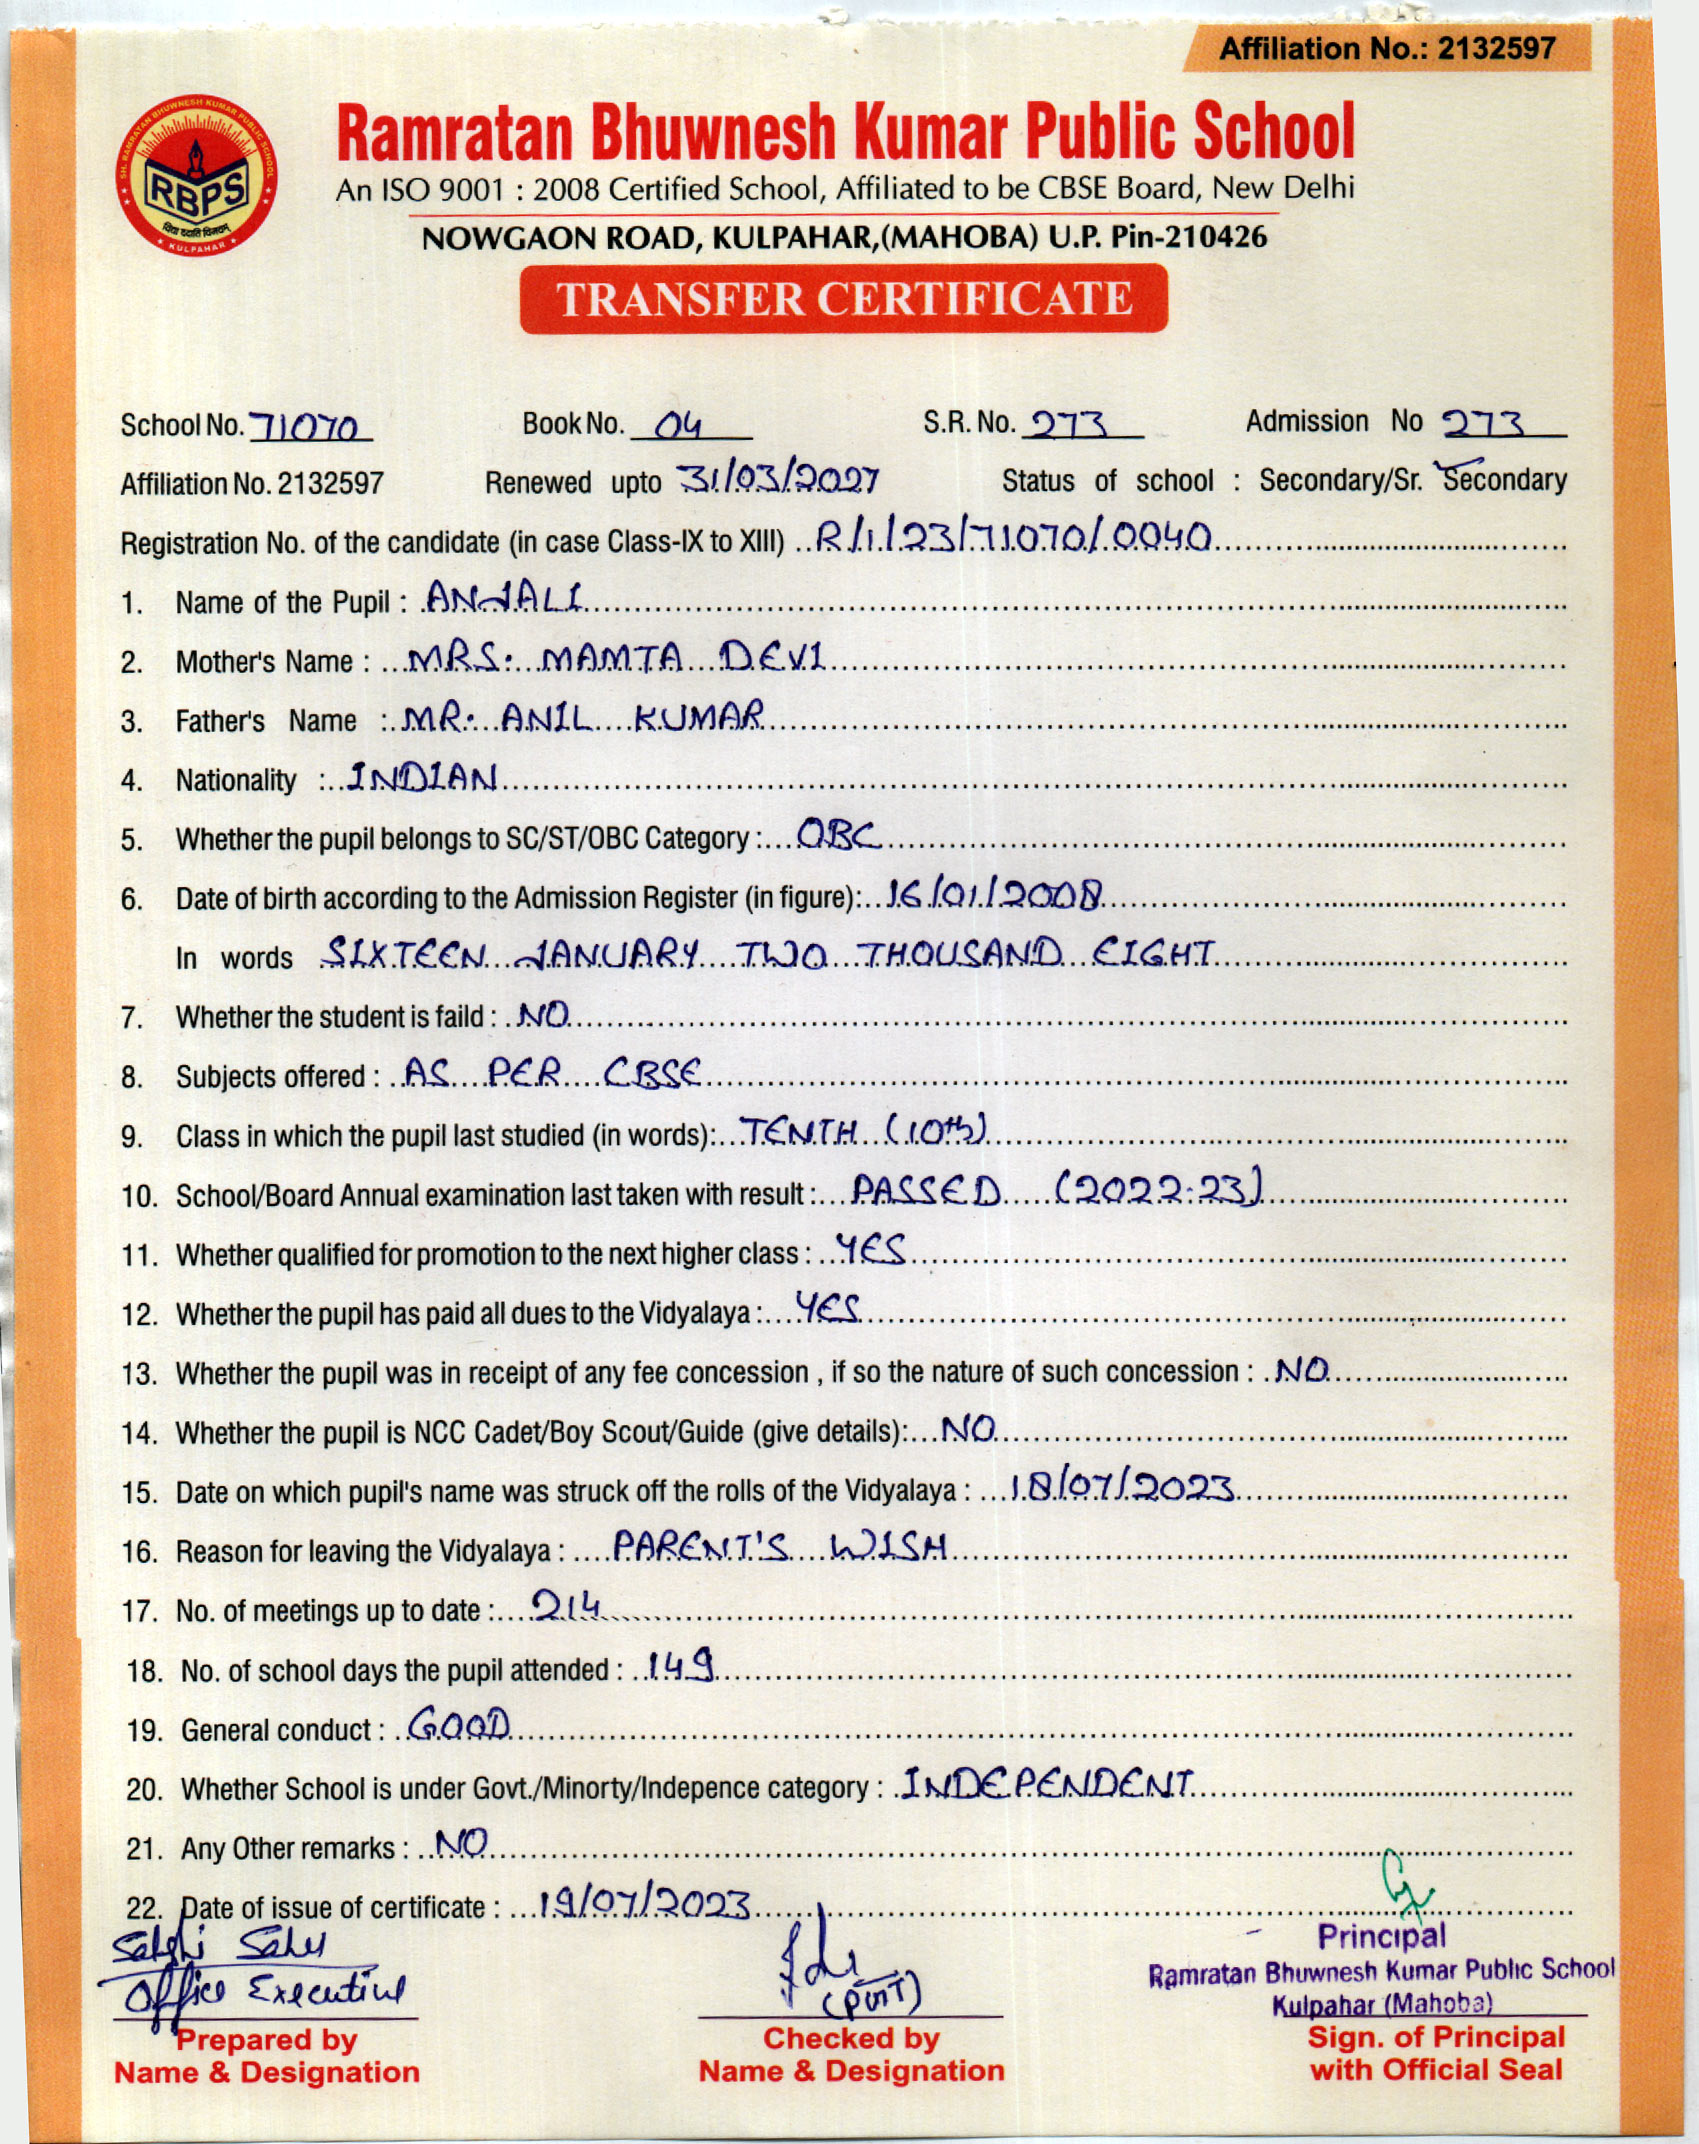 Affiliation No.: 2132597
SH. RAMRATAN BHUWNESH KUMAR PUBLIC SCHOOL
RBPS
विद्या ददाति विनयम्
★ KULPAHAR ★
Ramratan Bhuwnesh Kumar Public School
An ISO 9001 : 2008 Certified School, Affiliated to be CBSE Board, New Delhi
NOWGAON ROAD, KULPAHAR,(MAHOBA) U.P. Pin-210426
TRANSFER CERTIFICATE
School No. 71070 Book No. 04 S.R. No. 273 Admission No 273
Affiliation No. 2132597 Renewed upto 31/03/2027 Status of school : Secondary/Sr. Secondary
Registration No. of the candidate (in case Class-IX to XIII) R/1/23/71070/0040
1. Name of the Pupil : ANJALI
2. Mother's Name : MRS. MAMTA DEVI
3. Father's Name : MR. ANIL KUMAR
4. Nationality : INDIAN
5. Whether the pupil belongs to SC/ST/OBC Category : OBC
6. Date of birth according to the Admission Register (in figure): 16/01/2008
In words SIXTEEN JANUARY TWO THOUSAND EIGHT
7. Whether the student is faild : NO
8. Subjects offered : AS PER CBSE
9. Class in which the pupil last studied (in words): TENTH (10th)
10. School/Board Annual examination last taken with result : PASSED (2022-23)
11. Whether qualified for promotion to the next higher class : YES
12. Whether the pupil has paid all dues to the Vidyalaya : YES
13. Whether the pupil was in receipt of any fee concession , if so the nature of such concession : NO
14. Whether the pupil is NCC Cadet/Boy Scout/Guide (give details): NO
15. Date on which pupil's name was struck off the rolls of the Vidyalaya : 18/07/2023
16. Reason for leaving the Vidyalaya : PARENT'S WISH
17. No. of meetings up to date : 214
18. No. of school days the pupil attended : 149
19. General conduct : GOOD
20. Whether School is under Govt./Minorty/Indepence category : INDEPENDENT
21. Any Other remarks : NO
22. Date of issue of certificate : 19/07/2023
Sakshi Sahu
Office Executive
Prepared by
Name & Designation
Checked by
Name & Designation
Principal
Ramratan Bhuwnesh Kumar Public School
Kulpahar (Mahoba)
Sign. of Principal
with Official Seal